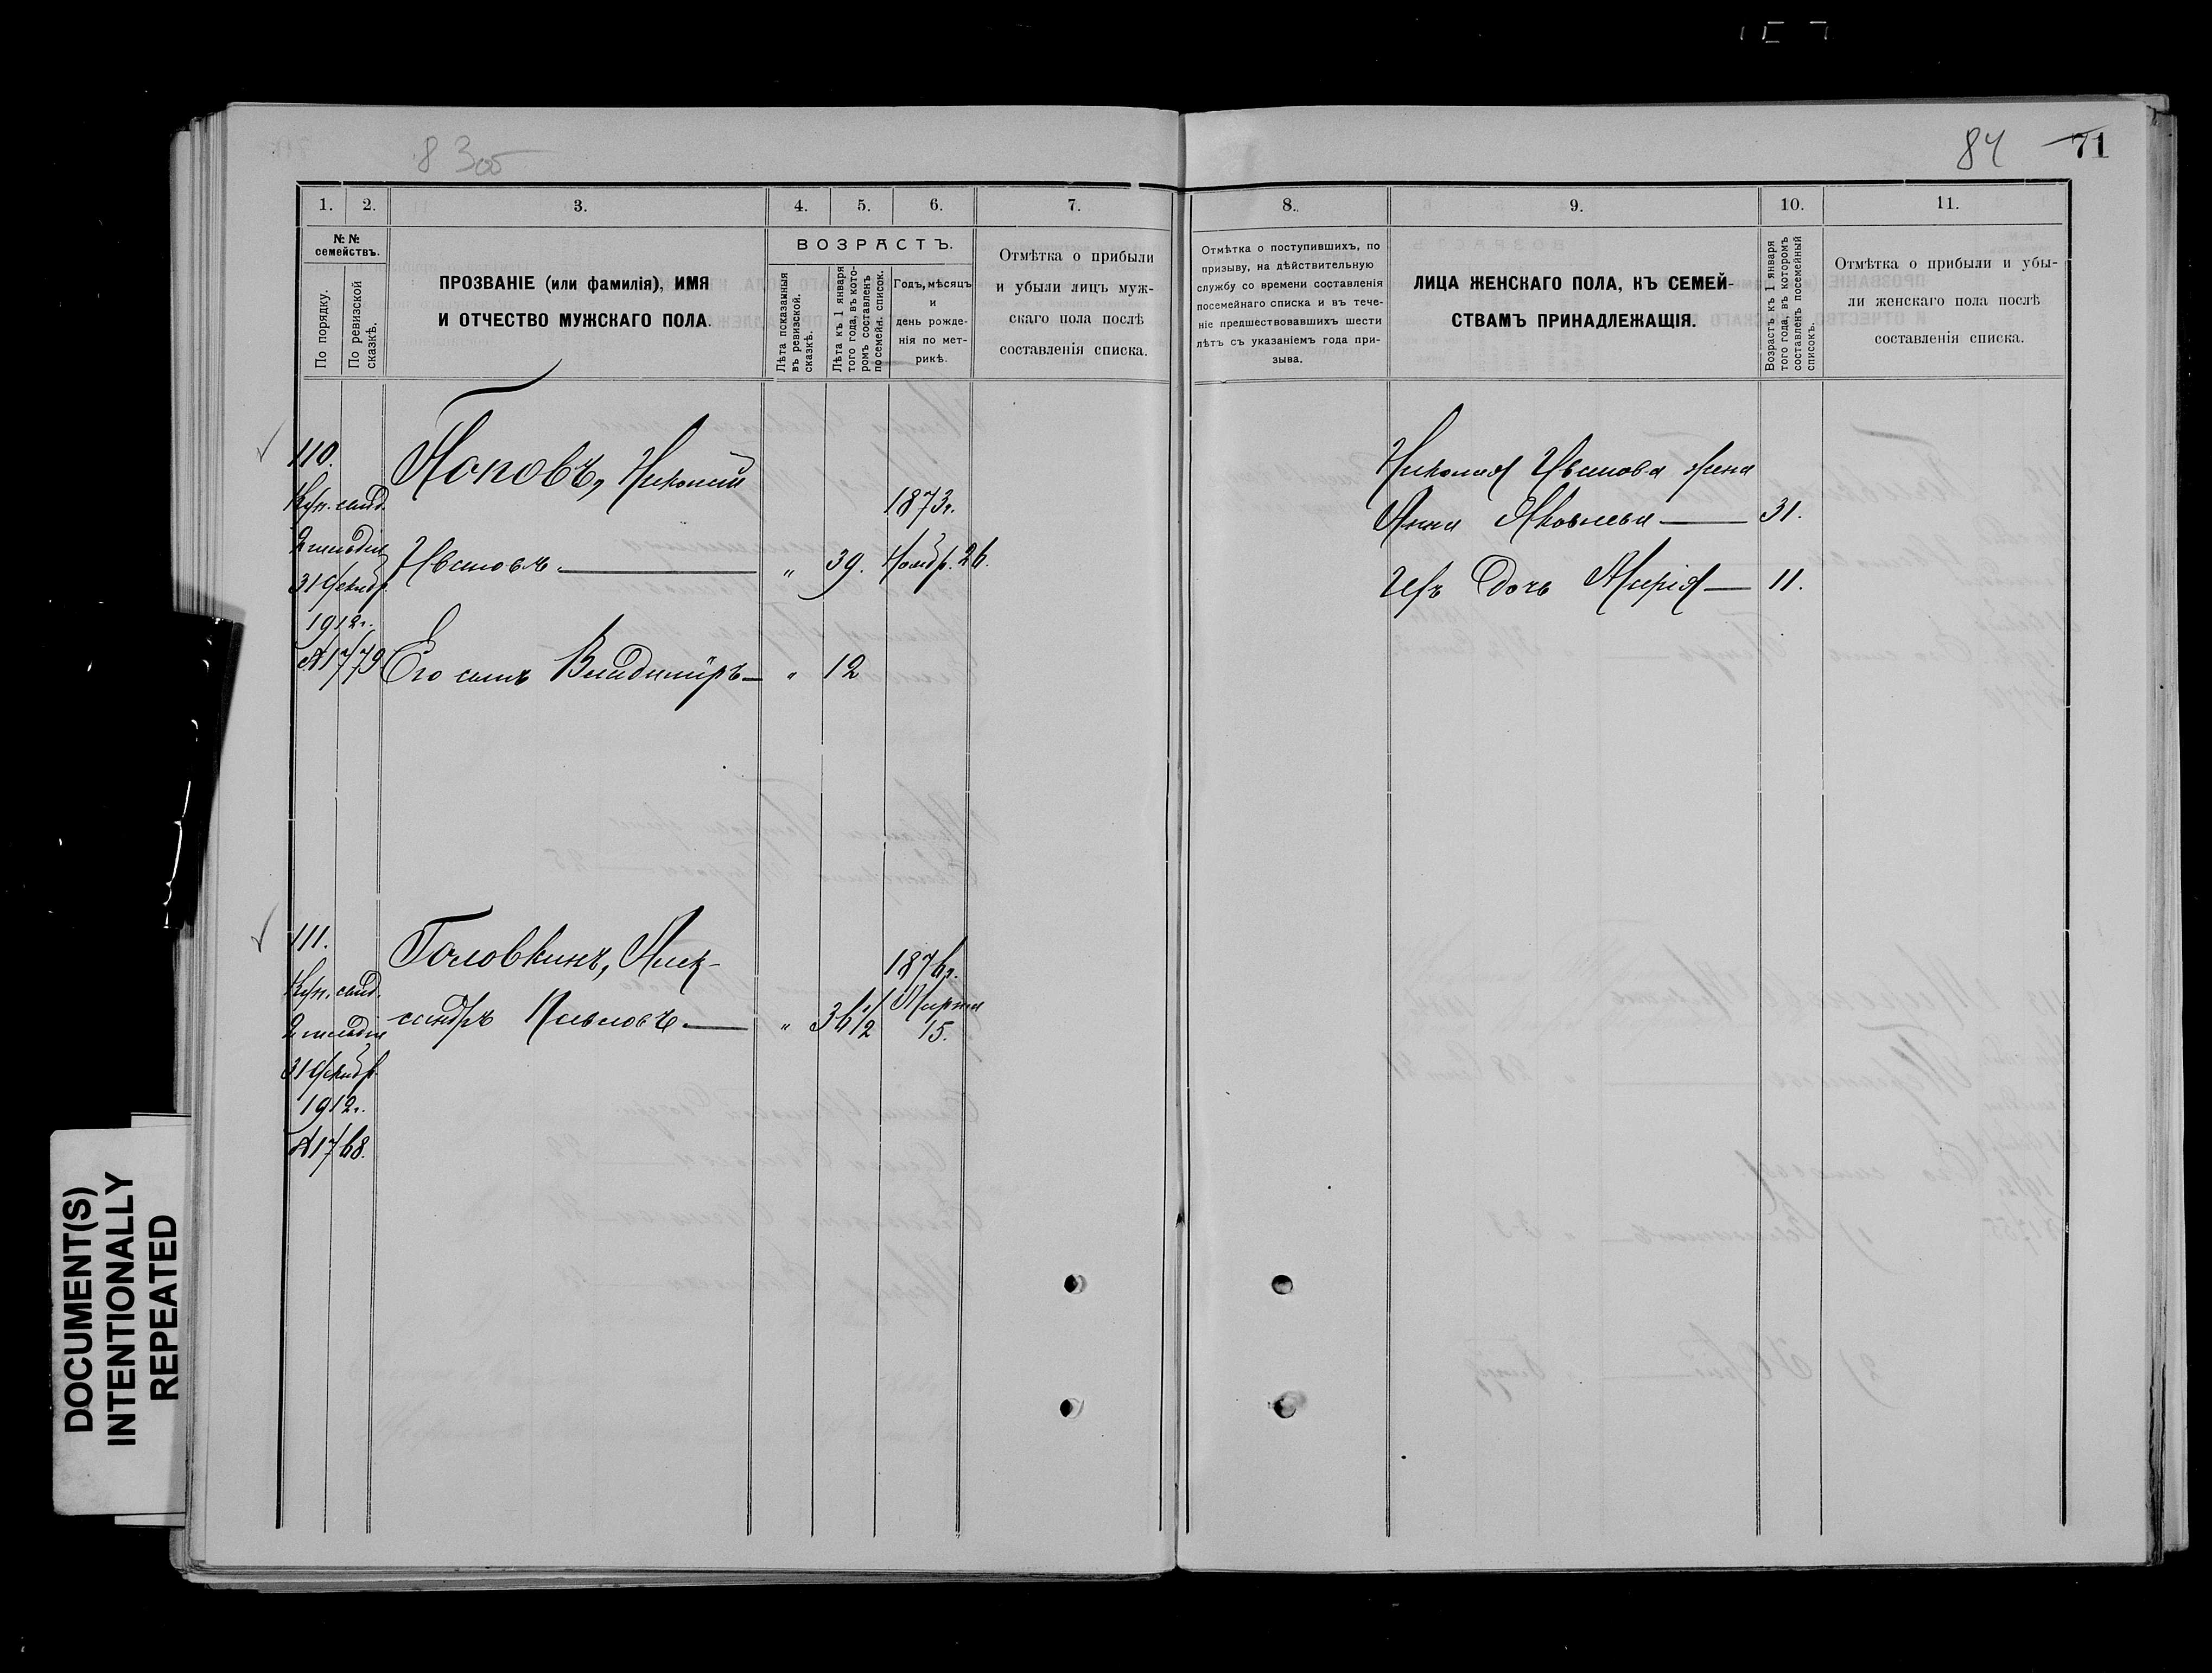 83об
84 71
1. 2. 3. 4. 5. 6. 7.
№ №
семействъ.
По порядку.
По ревизской
сказкѣ.
ПРОЗВАНІЕ (или фамилія), ИМЯ
И ОТЧЕСТВО МУЖСКАГО ПОЛА.
ВОЗРАСТЪ.
Лѣта показанныя
въ ревизской.
сказкѣ.
Лѣта къ 1 января
того года, въ кото-
ромъ составленъ
посемейн. списокъ.
Годъ, мѣсяцъ
и
день рожде-
нія по мет-
рикѣ.
Отмѣтка о прибыли
и убыли лицъ муж-
скаго пола послѣ
составленія списка.
110.
Куп. свид.
2 гильдіи
31 Декабр.
1912г.
№1779
Поповъ, Николай
Ивановъ.
" 39. 1873г.
Ноябр. 26.
Его сынъ Владиміръ — " 12
111.
Куп. свид.
2 гильдіи
31 Декабр.
1912г.
№1768.
Головкинъ, Алек-
сандръ Павловъ — " 36 1/2
1876г.
Марта
15.
8. 9. 10. 11.
Отмѣтка о поступившихъ, по
призыву, на дѣйствительную
службу со времени составленія
посемейнаго списка и въ тече-
ніе предшествовавшихъ шести
лѣтъ съ указаніемъ года при-
зыва.
ЛИЦА ЖЕНСКАГО ПОЛА, КЪ СЕМЕЙ-
СТВАМЪ ПРИНАДЛЕЖАЩІЯ.
Возрастъ къ 1 января
того года, въ которомъ
составленъ посемейный
списокъ.
Отмѣтка о прибыли и убы-
ли женскаго пола послѣ
составленія списка.
Николая Иванова жена
Анна Яковлева — 31.
Ихъ дочь Марія — 11.
DOCUMENT(S)
INTENTIONALLY
REPEATED